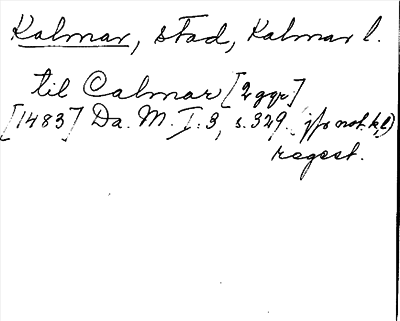 Kalmar, stad, Kalmar l.
til Calmar [2 ggr]
[1483] Da. M. I: 3, s. 329.
regest.